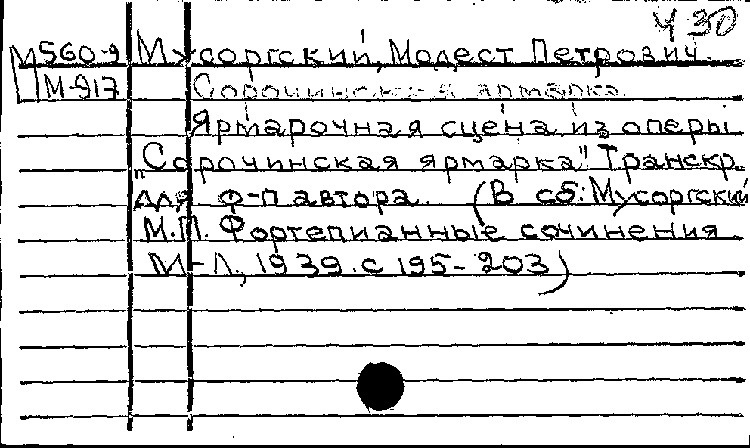 Ч 30
М560-9 Мусоргский, Модест Петрович.
М-917 Сорочинская ярмарка.
Ярмарочная сцена из оперы
„Сорочинская ярмарка". Транскр.
для ф-п автора. (В сб: Мусоргский
М.П. Фортепианные сочинения
М-Л, 1939. с 195-203)